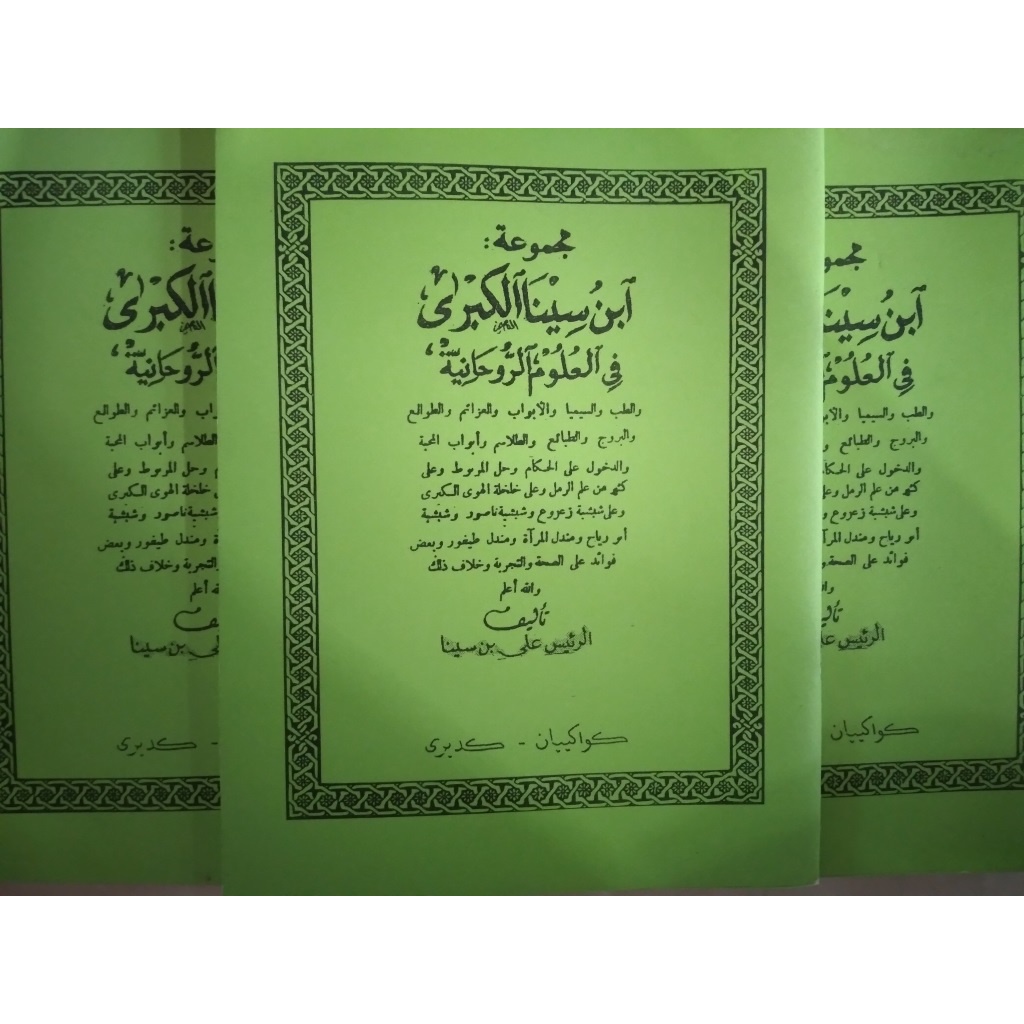 مجموعة:
ابن سينا الكبرى
في العلوم الروحانية،
والطب والسيميا والأبواب والعزائم والطوالع
والبروج والطبائع والطلاسم وأبواب المحبة
والدخول على الحكام وحل المربوط وعلى
كثير من علم الرمل وعلى خلخلة الهوى الكبرى
وعلى شبشبة زعزوع وشبشبة ناصور وشبشبة
أبو رياح ومندل المرآة ومندل طيفور وبعض
فوائد على الصحة والتجربة وخلاف ذلك
والله أعلم
تأليف
الرئيس علي بن سينا
كواكييان - كديرى